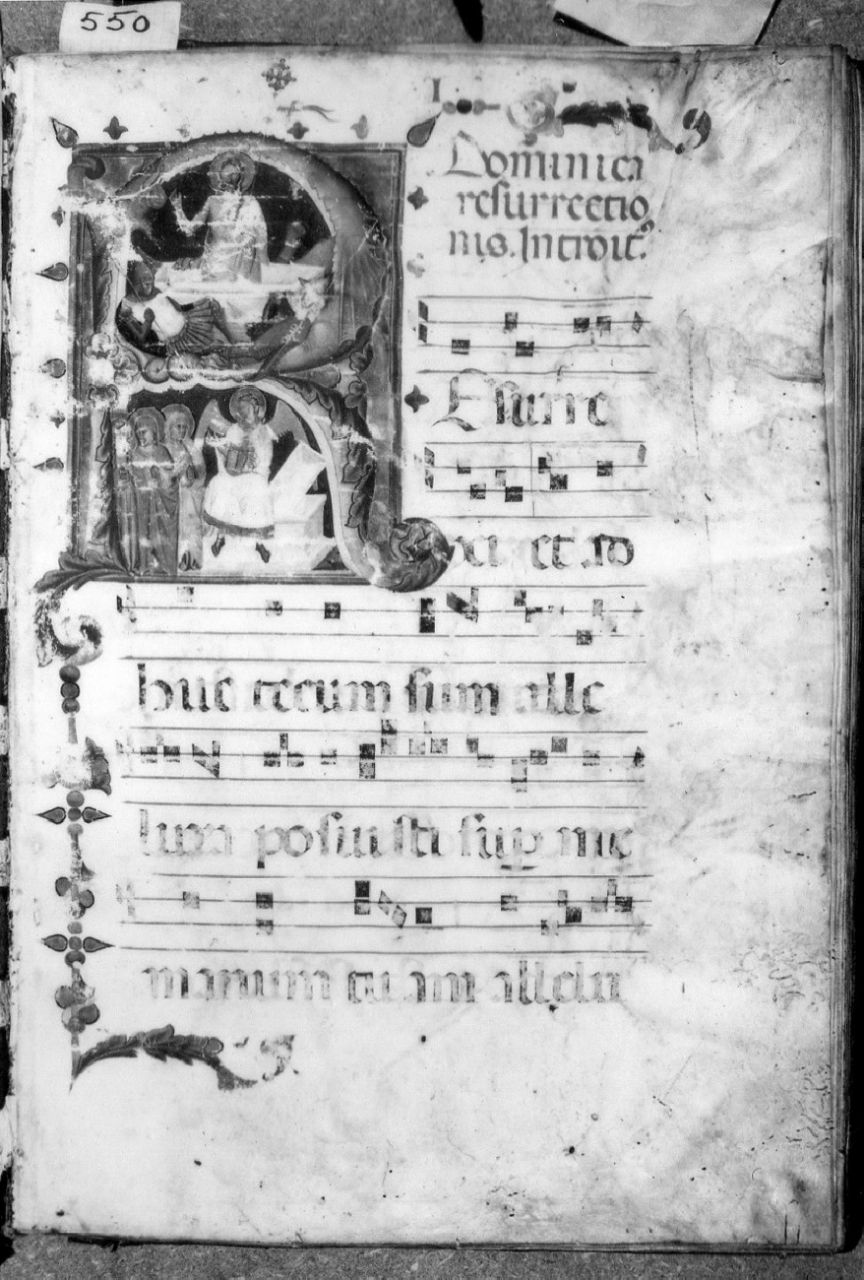 550
I
Dominica
resurrectio
nis. Introit᷒
Esurre
xi et ad
huc tecum sum alle
luya posuisti sup me
manum tu am allelu